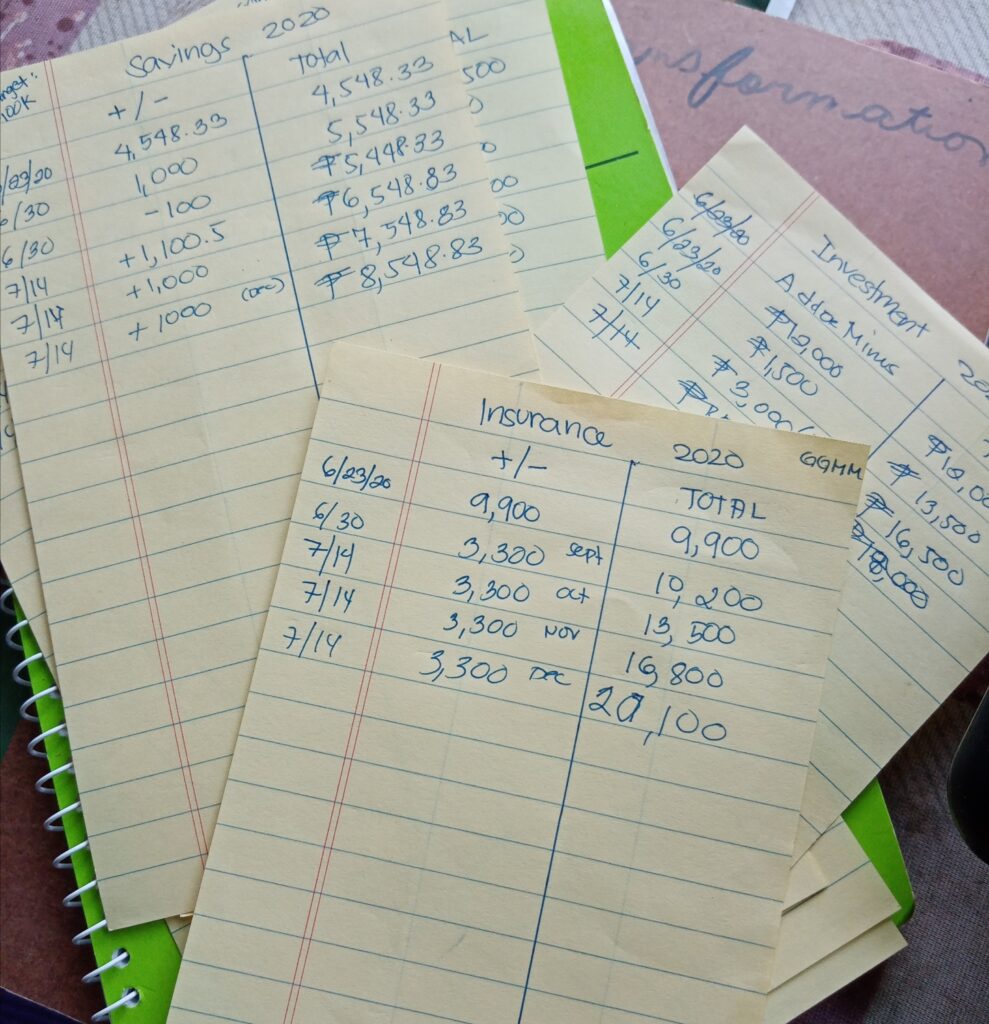 Savings 2020
Target:
100K
+/- Total
/23/20 4,548.33 4,548.33
6/30 1,000 5,548.33
6/30 -100 ₱5,448.33
7/14 +1,100.5 ₱6,548.83
7/14 +1,000 ₱7,548.83
7/14 +1000 (Dec) ₱8,548.83
AL
500
00
nsformation
Investment 20
6/23/20 Add or Minus
6/23/20 ₱12,000 ₱12,00
6/30 ₱1,500 ₱13,500
7/14 ₱3,000 ₱16,500
7/14 18,000
Insurance 2020 GGMM
+/- TOTAL
6/23/20 9,900 9,900
6/30 3,300 Sept 10,200
7/14 3,300 Oct 13,500
7/14 3,300 Nov 16,800
7/14 3,300 Dec 20,100